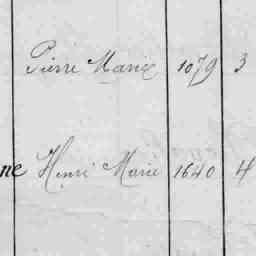 Pierre Marie 1079 3
ne Henri Marie 1640 4